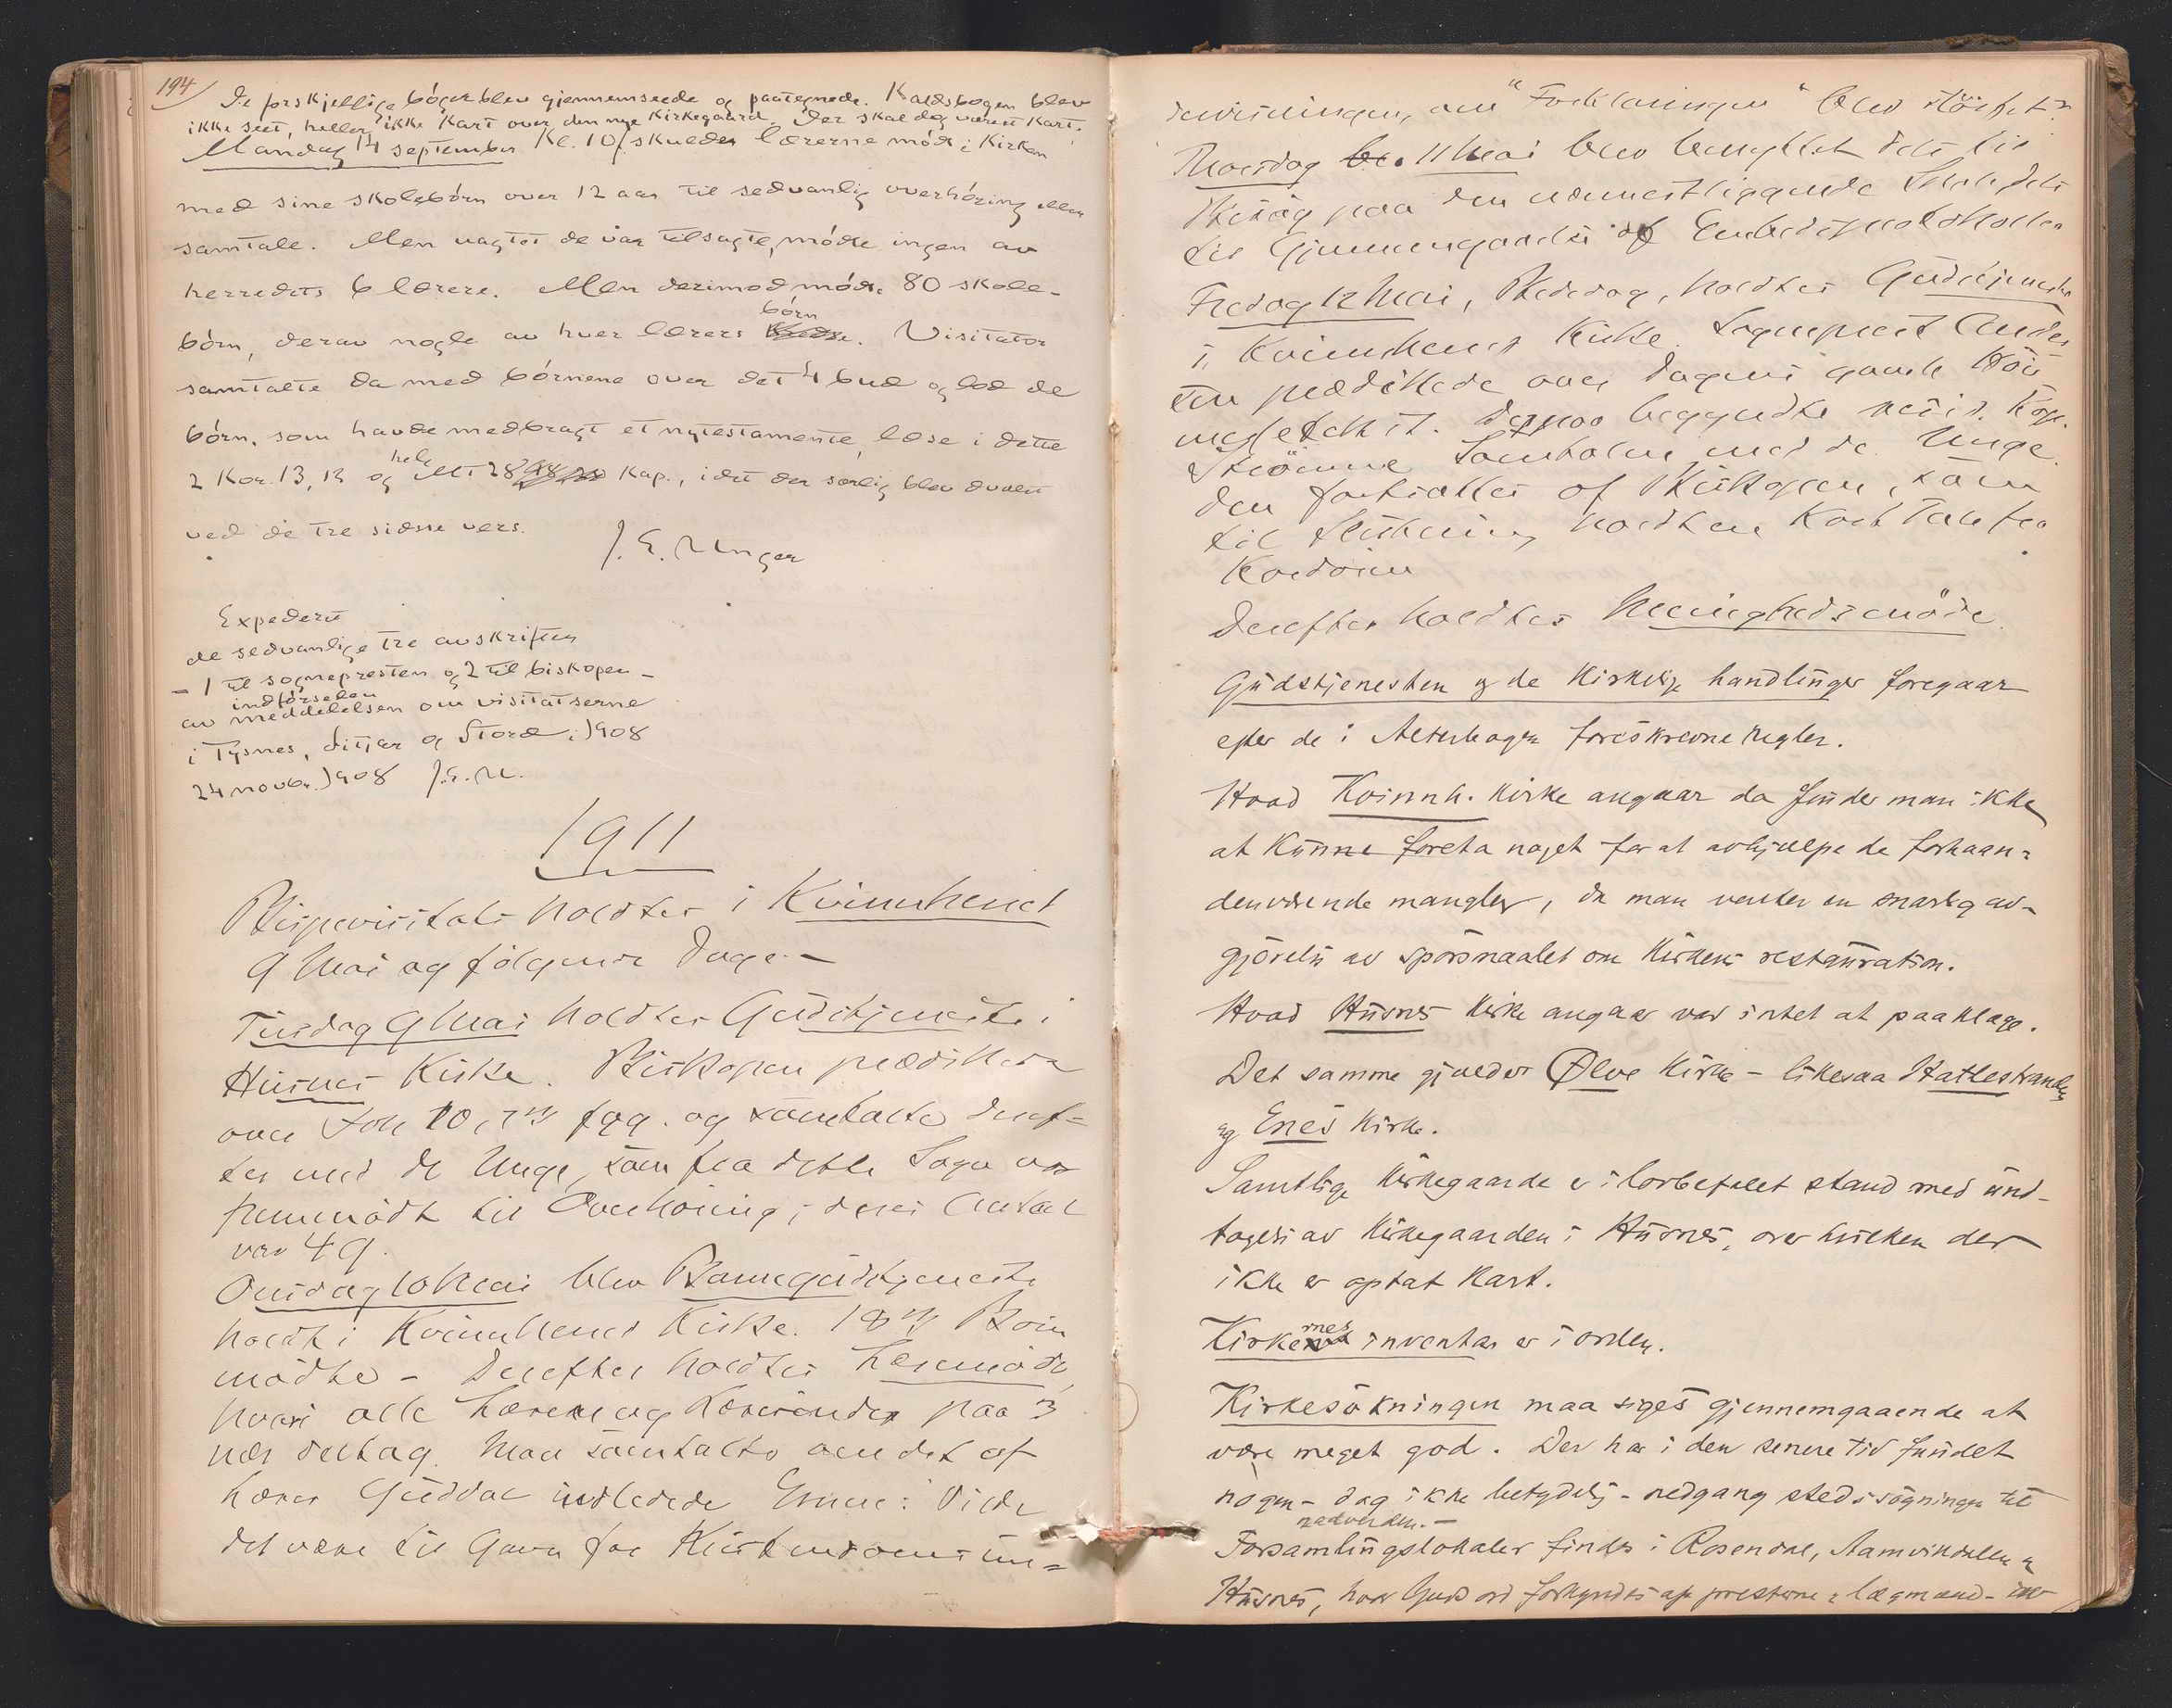 194
De forskjellige bøger blev gjennemseede og paategnede. Kaldsbogen blev
ikke seet, heller ikke kart over den nye kirkegaard. Der skal dog været kart.
Mandag 14 september Kl. 10 skulde lærerne møde i Kirken
med sine skolebørn over 12 aar til sedvanlig overhøring eller
samtale. Men uagtet de var tilsagte, mødte ingen av
herredets 6 lærere. Men derimod mødte 80 skole-
børn, derav nogle av hver lærers børn. Visitator
samtalte da med børnene over det 4 bud og lod de
børn, som havde medbragt et nytestamente, læse i dette
2 Kor. 13, 13 og hele Mt 28 Kap., idet der særlig blev dvælet
ved de tre sidste vers.
J. E. Unger
Expederet
de sedvanlige tre avskrifter
- 1 til sognepresten og 2 til biskopen -
av indførselen
meddelelsen om visitatserne
i Tysnes, Fitjar og Stord i 1908
24 novbr. 1908 J. E. U.
1911
Bispevisitats holdtes i Kvinnherred
9 Mai og følgende Dage. -
Tirsdag 9 Mai holdtes Gudstjeneste i
Husnes Kirke. Biskopen prædikede
over Joh 10, fgg. og samtalte deref-
ter med de Unge, som fra dette Sogn var
fremmødt til Overhøring; deres Antal
var 49.
Onsdag 10 Mai blev Barnegudstjeneste
holdt i Kvinnherred Kirke. Børn
mødte - Derefter holdtes Lærermøde,
hvori alle Lærere og Lærerinder paa 3
nær deltog. Man samtalte om det af
Lærer Guddal indledede Emne: Vilde
det være til Gavn for Kristendomsun-
dervisningen, om "Forklaringen" blev sløifet?
Thorsdag 11 Mai blev benyttet dels til
Besøg paa den nærmestliggende Skole dels
til Gjennemgaaelse af Embedsprotokoller
Fredag 12 Mai, Bededag, holdtes Gudstjeneste
i Kvinnherred Kirke. Sogneprest
prædikede over Dagens gamle Høi-
messetekst. Derpaa begyndte
Samtalen med de Unge.
den fortsattes af Biskopen, som
til Slutning holdt en kort Tale fra
Kordøren
Derefter holdtes Menighedsmøde.
Gudstjenesten og de kirkelige handlinger foregaar
efter de i Alterbogen foreskrevne regler.
Hvad Kvinnh. kirke angaar da finder man ikke
at kunne foreta noget for at avhjælpe de forhaan-
denværende mangler, da man venter en snarlig av-
gjørelse av spørsmaalet om kirkens restauration.
Hvad Husnes kirke angaar var intet at paaklage.
Det samme gjælder Ølve kirke - likesaa Hatlestrandens
og Enes kirke.
Samtlige kirkegaarde er i lovbefalet stand med und-
tagelse av kirkegaarden i Husnes, over hvilken der
ikke er optat kart.
Kirkernes inventar er i orden.
Kirkesøkningen maa siges gjennemgaaende at
være meget god. Der har i den senere tid fundet
nogen - dog ikke betydelig - nedgang sted i søgningen til
nadverden. -
Forsamlingslokaler findes i Rosendal, Aamvikdalen og
Husnes, hvor Guds ord forkyndes av presterne og lægmænd -